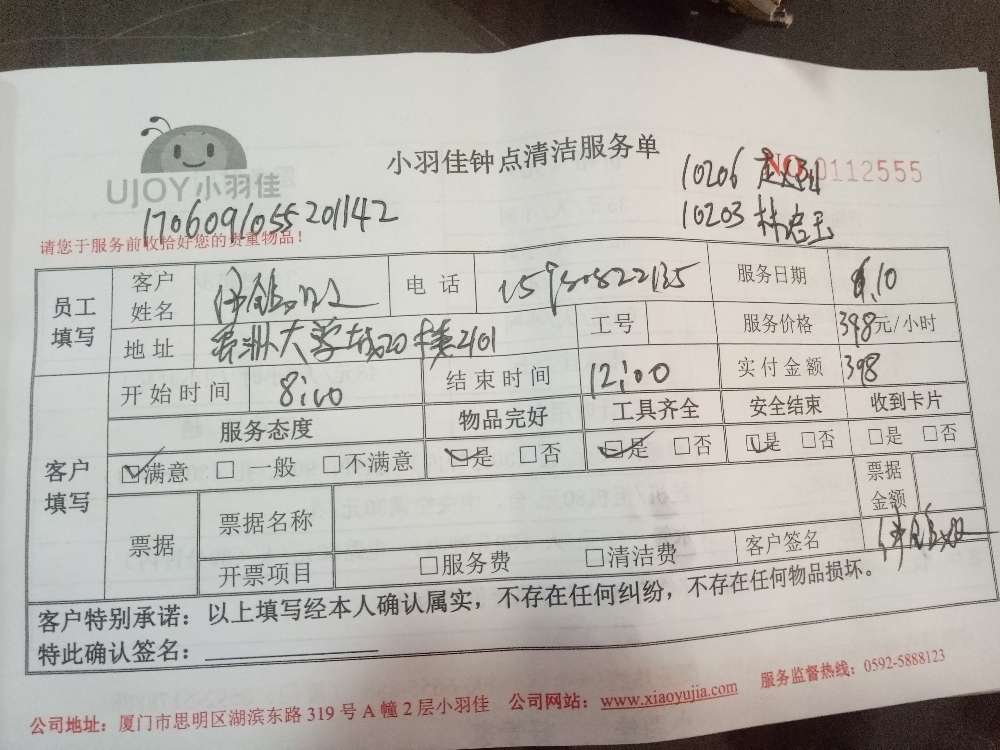 小羽佳钟点清洁服务单
UJOY小羽佳
10206
NO 0112555
10203 林启玉
1706091055201142
请您于服务前收拾好您的贵重物品!
员工填写 客户姓名 电话 服务日期 6.10
地址 大学城20楼2101 工号 服务价格 398元/小时
客户填写 开始时间 8:00 结束时间 12:00 实付金额 398
服务态度 物品完好 工具齐全 安全结束 收到卡片
☑满意 □ 一般 □不满意 ☑是 □否 ☑是 □否 ☑是 □否 □是 □否
票据 票据名称 票据金额
开票项目 □服务费 □清洁费 客户签名
客户特别承诺:以上填写经本人确认属实,不存在任何纠纷,不存在任何物品损坏。
特此确认签名:
公司地址:厦门市思明区湖滨东路 319 号 A 幢 2 层小羽佳 公司网站:www.xiaoyujia.com 服务监督热线:0592-5888123